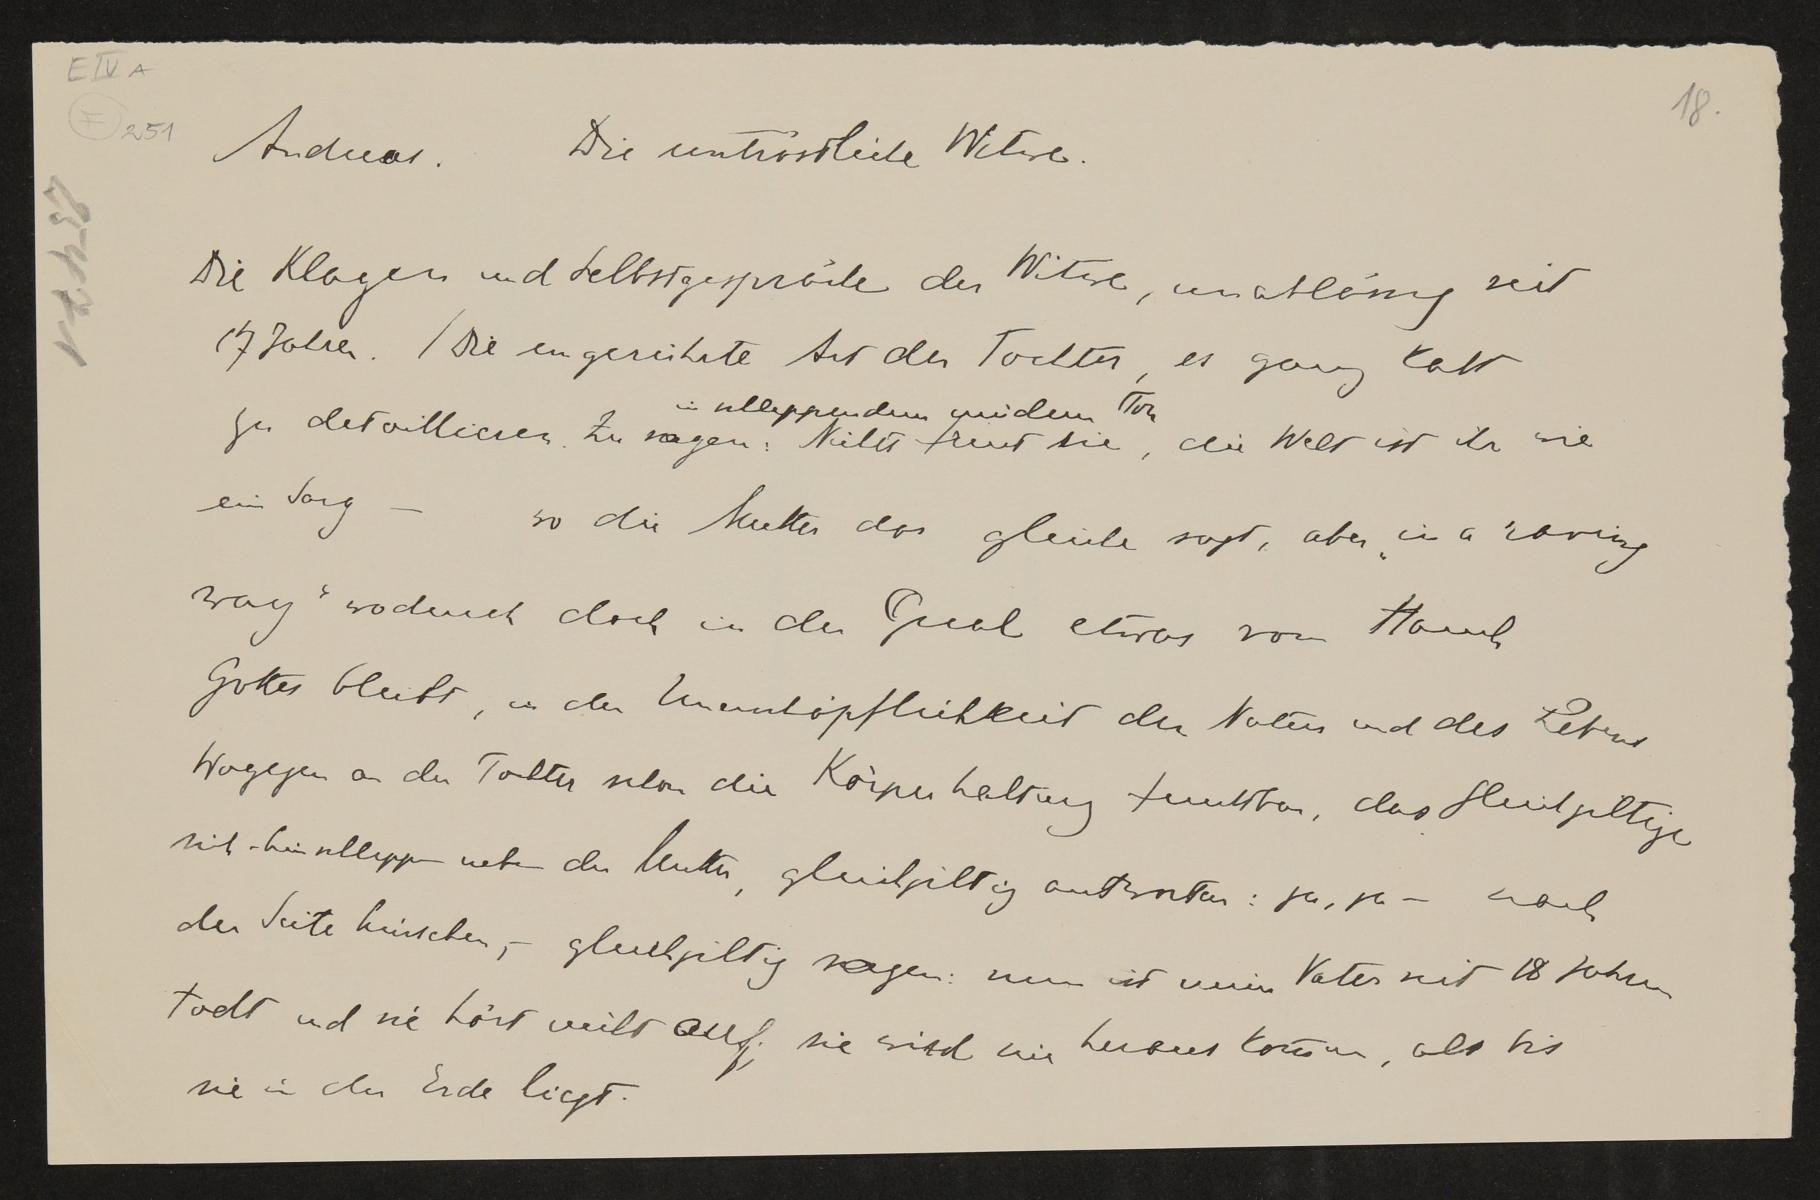 E IV A
F 251
18.
Andreas. Die untröstliche Witwe.
Die Klagen und Selbstgespräche der Witwe, unablässig seit
17 Jahren. / Die eingereihte Art der Tochter, es ganz kalt
in schleppendem müdem Ton
zu detaillieren. Zu sagen: Nichts freut sie, die Welt ist ihr wie
ein Sarg – wo die Mutter das gleiche sagt, aber „in a raving
way" wodurch doch in der Qual etwas vom Hauch
Gottes bleibt, in der Unerschöpflichkeit der Natur und des Lebens
Wogegen an der Tochter schon die Körperhaltung furchtbar, das gleichgiltige
sich-hinschleppen neben der Mutter, gleichgiltig antworten: ja, ja – nach
der Seite hinsehen, – gleichgiltig sagen: nun ist mein Vater seit 18 Jahren
todt und sie hört nicht auf, sie wird nie heraus kommen, als bis
sie in der Erde liegt.